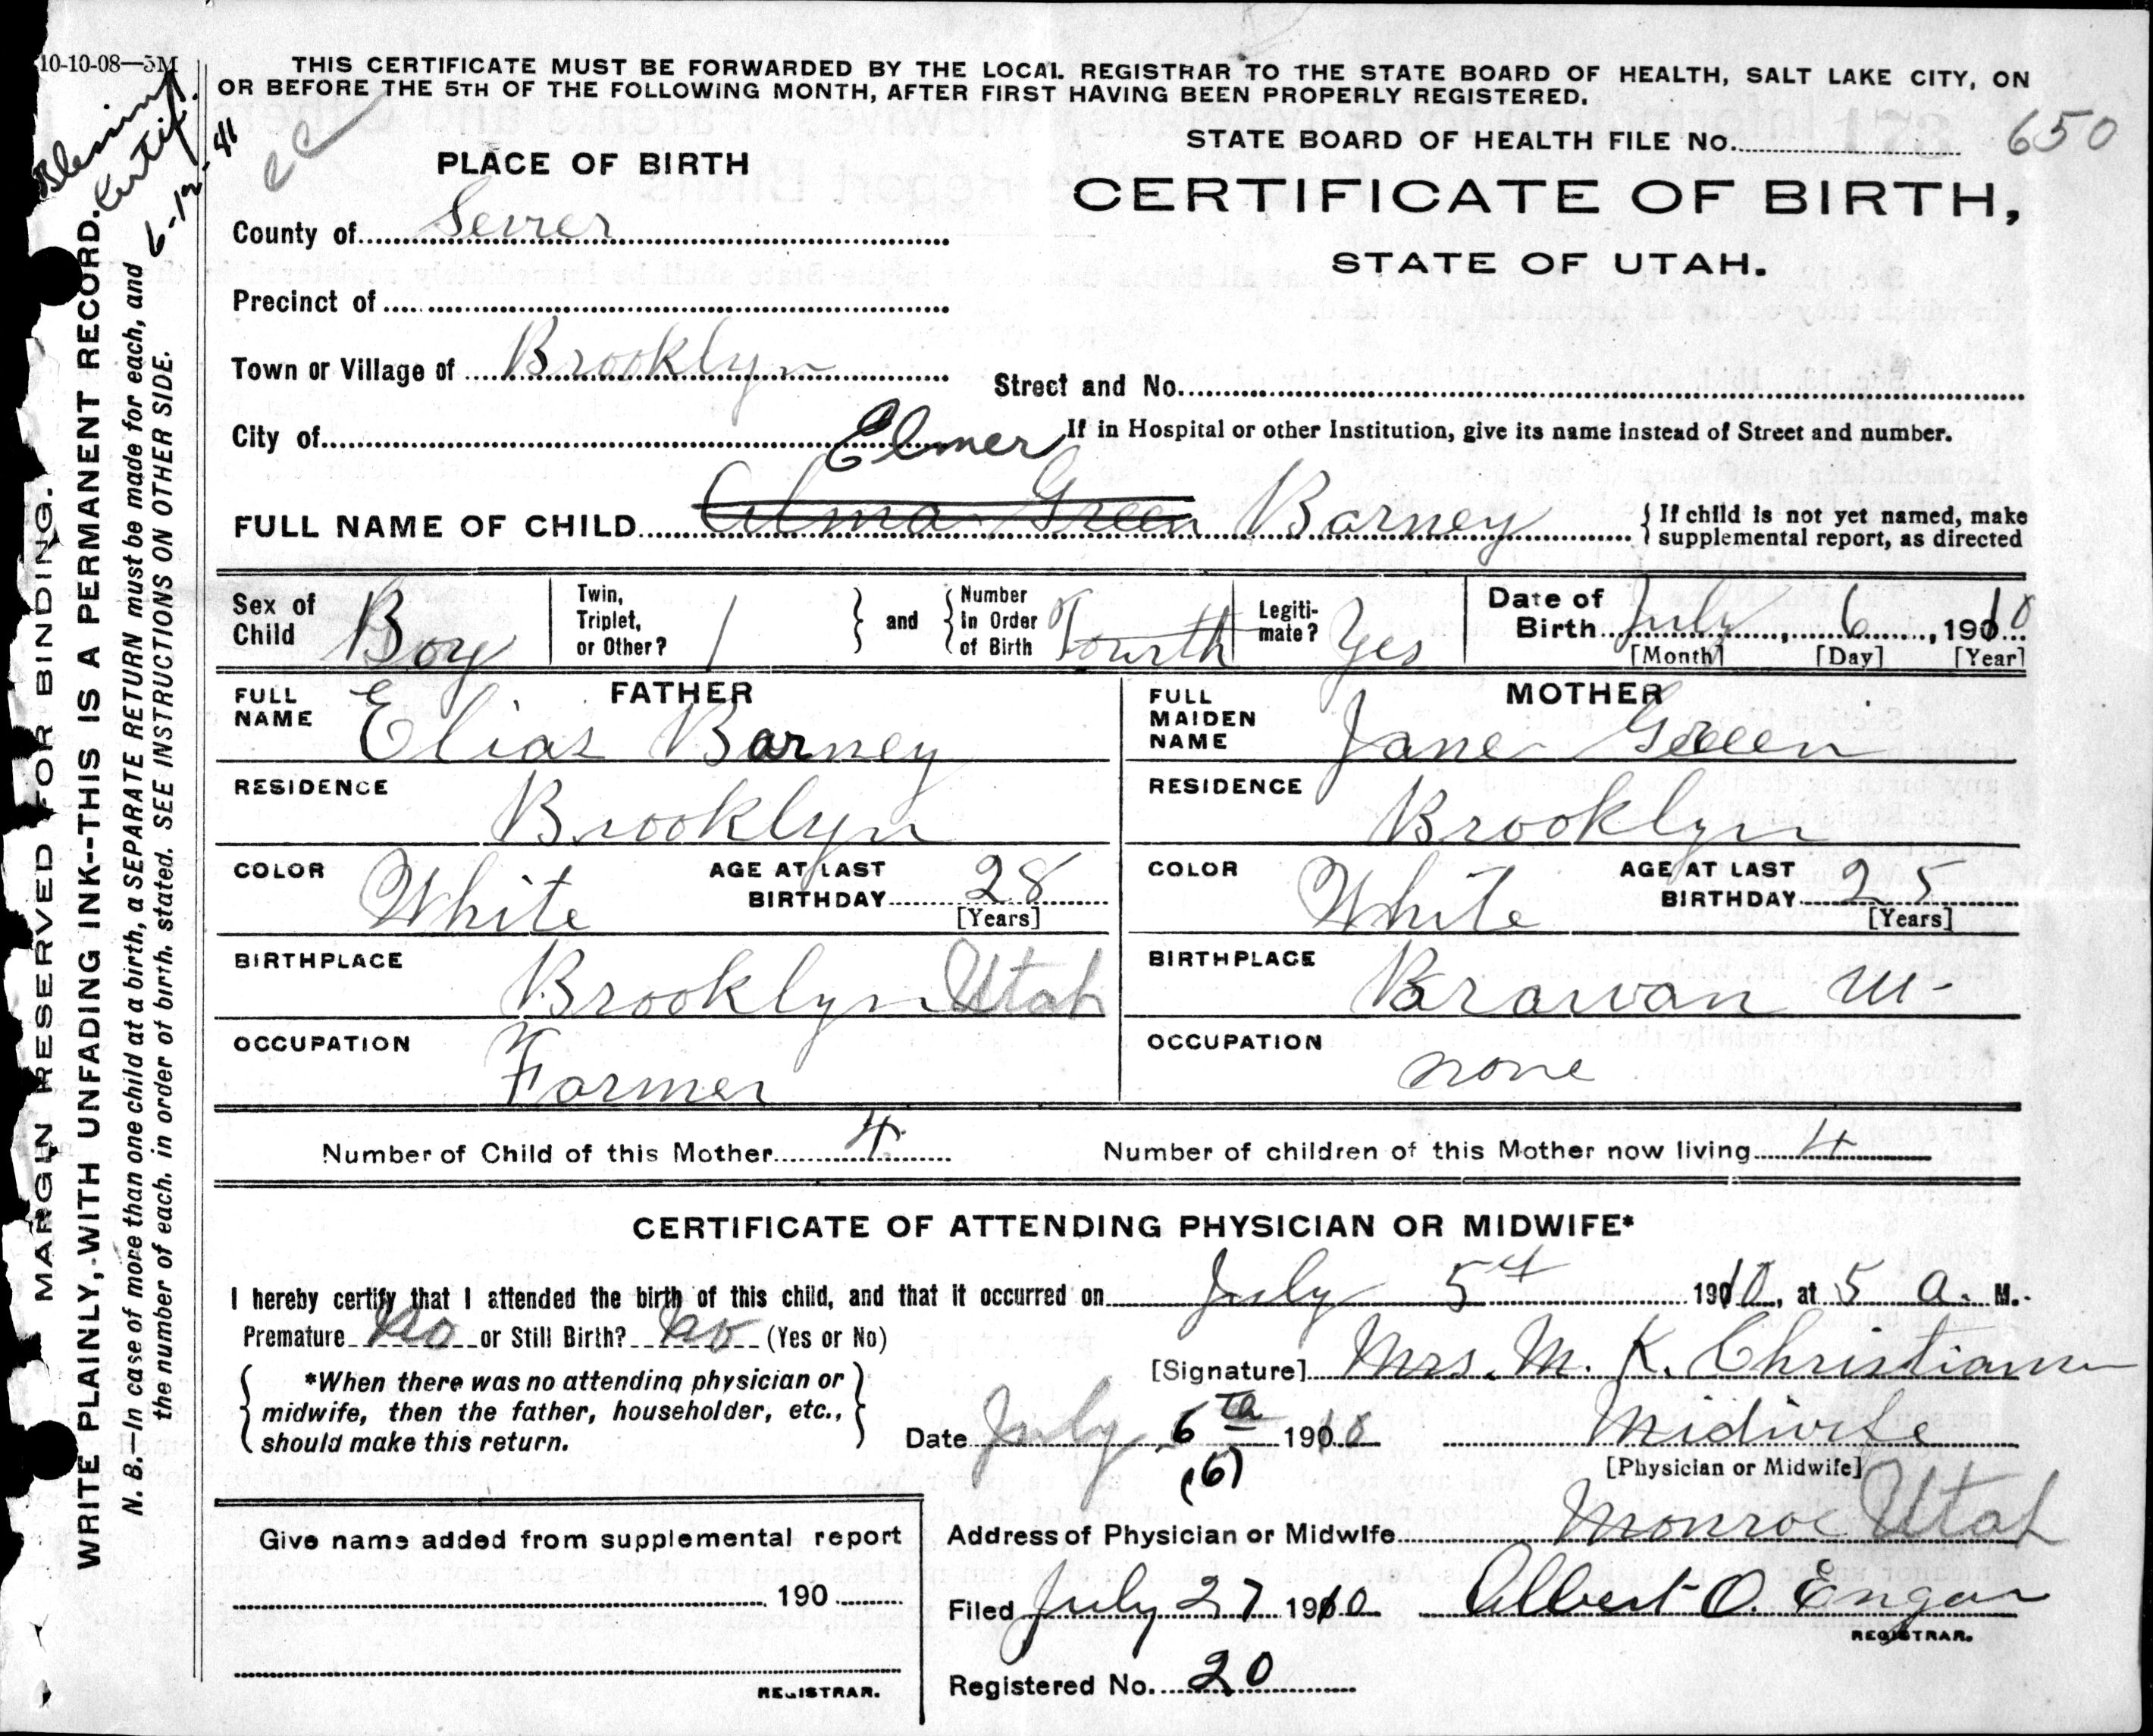 10-10-08—5M
Blessing
Certif.
6-12-41
THIS CERTIFICATE MUST BE FORWARDED BY THE LOCAL REGISTRAR TO THE STATE BOARD OF HEALTH, SALT LAKE CITY, ON
OR BEFORE THE 5TH OF THE FOLLOWING MONTH, AFTER FIRST HAVING BEEN PROPERLY REGISTERED.
STATE BOARD OF HEALTH FILE No. 650
PLACE OF BIRTH
CERTIFICATE OF BIRTH,
STATE OF UTAH.
County of Sevier
Precinct of
Town or Village of Brooklyn
Street and No.
City of
If in Hospital or other Institution, give its name instead of Street and number.
Elmer
FULL NAME OF CHILD Alma Green Barney { If child is not yet named, make
supplemental report, as directed
Sex of Child Boy Twin, Triplet, or Other? 1 } and { Number in Order of Birth Fourth Legitimate? Yes Date of Birth July 6, 1910
[Month] [Day] [Year]
FATHER
FULL NAME Elias Barney
RESIDENCE Brooklyn
COLOR White AGE AT LAST BIRTHDAY 28
[Years]
BIRTHPLACE Brooklyn Utah
OCCUPATION Farmer
MOTHER
FULL MAIDEN NAME Jane Green
RESIDENCE Brooklyn
COLOR White AGE AT LAST BIRTHDAY 25
[Years]
BIRTHPLACE
OCCUPATION none
Number of Child of this Mother 4 Number of children of this Mother now living 4
CERTIFICATE OF ATTENDING PHYSICIAN OR MIDWIFE*
I hereby certify that I attended the birth of this child, and that it occurred on July 5th 1910, at 5 a. M.
Premature No or Still Birth? No (Yes or No)
[Signature] Mrs. M. K.
{ *When there was no attending physician or
midwife, then the father, householder, etc.,
should make this return. }
Date July 6th 1910 Midwife
(6)
[Physician or Midwife]
Address of Physician or Midwife Monroe Utah
Give name added from supplemental report
190
REGISTRAR.
Filed July 27 1910 Albert O.
REGISTRAR.
Registered No. 20
MARGIN RESERVED FOR BINDING.
WRITE PLAINLY, WITH UNFADING INK--THIS IS A PERMANENT RECORD.
N. B.—In case of more than one child at a birth, a SEPARATE RETURN must be made for each, and
the number of each, in order of birth, stated. SEE INSTRUCTIONS ON OTHER SIDE.